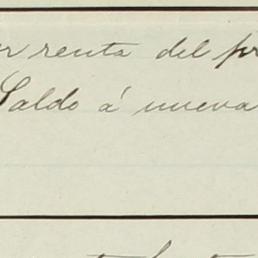 renta del
Saldo á nueva